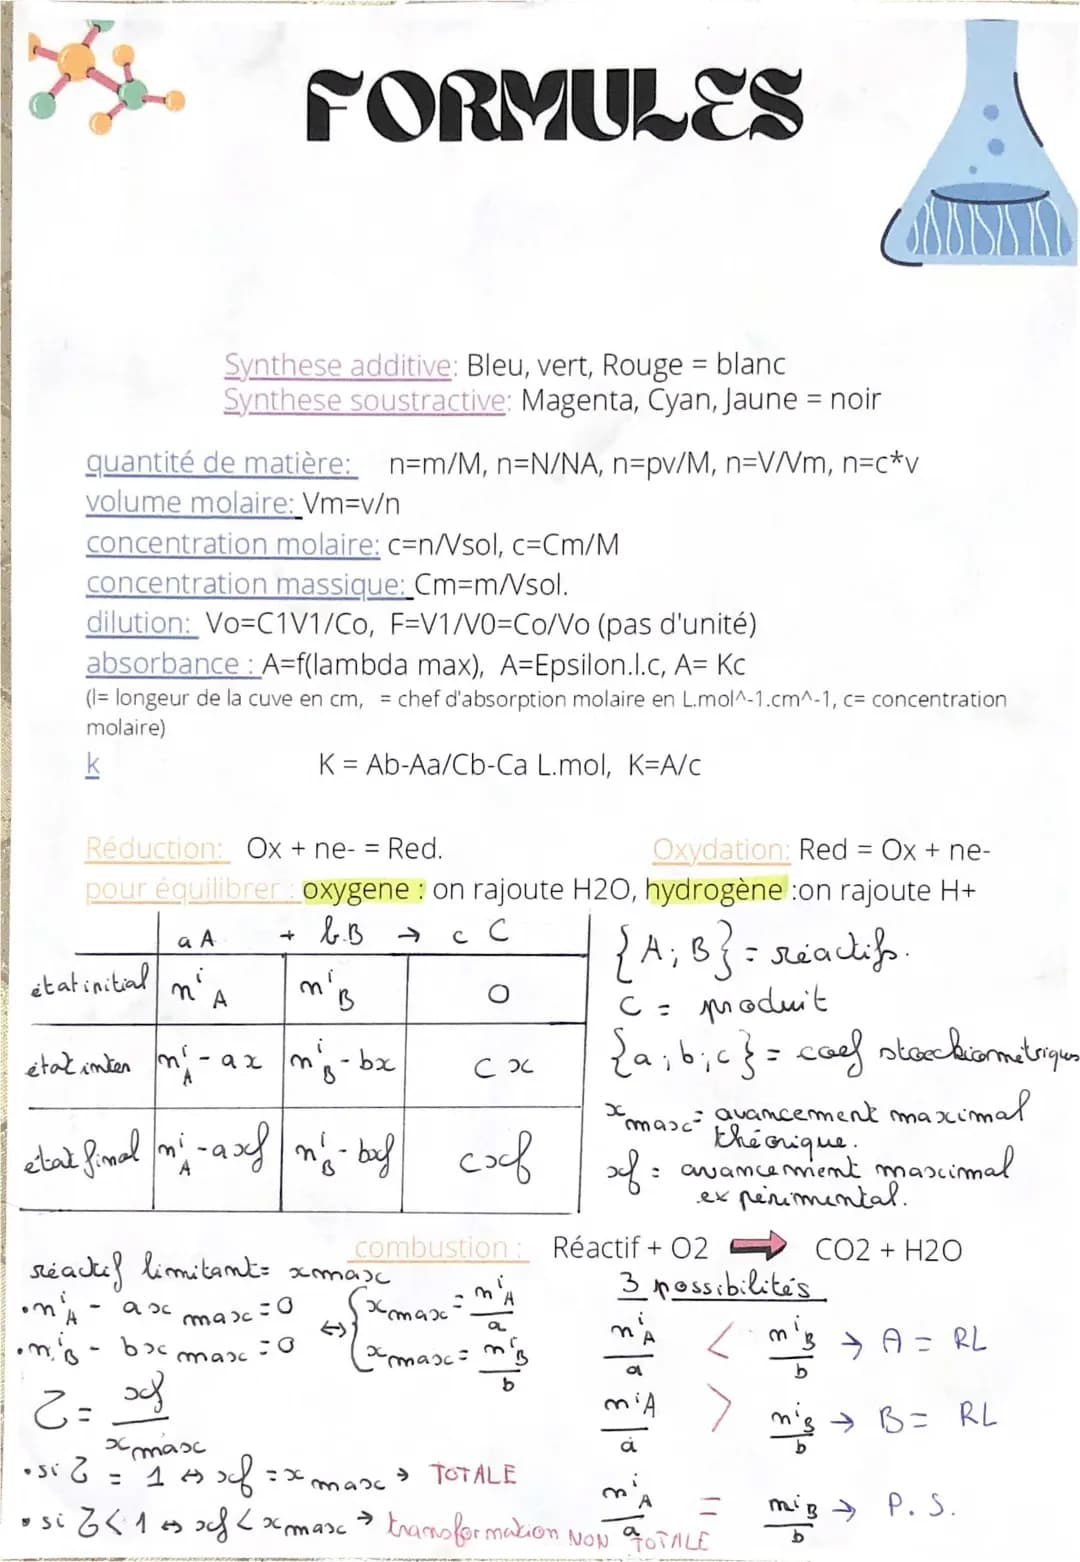 FORMULES
Synthese additive: Bleu, vert, Rouge = blanc
Synthese soustractive: Magenta, Cyan, Jaune = noir
quantité de matière: n=m/M, n=N/NA, n=pv/M, n=V/Vm, n=c*v
volume molaire: Vm=v/n
concentration molaire: c=n/Vsol, c=Cm/M
concentration massique: Cm=m/Vsol.
dilution: Vo=C1V1/Co, F=V1/V0=Co/Vo (pas d'unité)
absorbance : A=f(lambda max), A=Epsilon.l.c, A= Kc
(l= longeur de la cuve en cm, = chef d'absorption molaire en L.mol^-1.cm^-1, c= concentration
molaire)
k K = Ab-Aa/Cb-Ca L.mol, K=A/c
Réduction: Ox + ne- = Red. Oxydation: Red = Ox + ne-
pour équilibrer : oxygene : on rajoute H2O, hydrogène :on rajoute H+
a A + b B → c C
état initial nⁱA nⁱB 0
état inter nⁱA - ax nⁱB - bx cx
état final nⁱA - axf nⁱB - bxf cxf
{A; B} = réactifs.
C = produit
{a; b; c} = coef stoechiométriques
xmax = avancement maximal
théorique.
xf = avancement maximal
expérimental.
combustion : Réactif + O2 → CO2 + H2O
réactif limitant = xmax
• nⁱA - ax max = 0 ⇔ { xmax = nⁱA/a
• nⁱB - bx max = 0 { xmax = nⁱB/b
τ = xf/xmax
• si τ = 1 ⇔ xf = xmax → TOTALE
• si τ < 1 ⇔ xf < xmax → transformation NON TOTALE
3 possibilités
nⁱA/a < nⁱB/b → A = RL
nⁱA/a > nⁱB/b → B = RL
nⁱA/a = nⁱB/b → P.S.